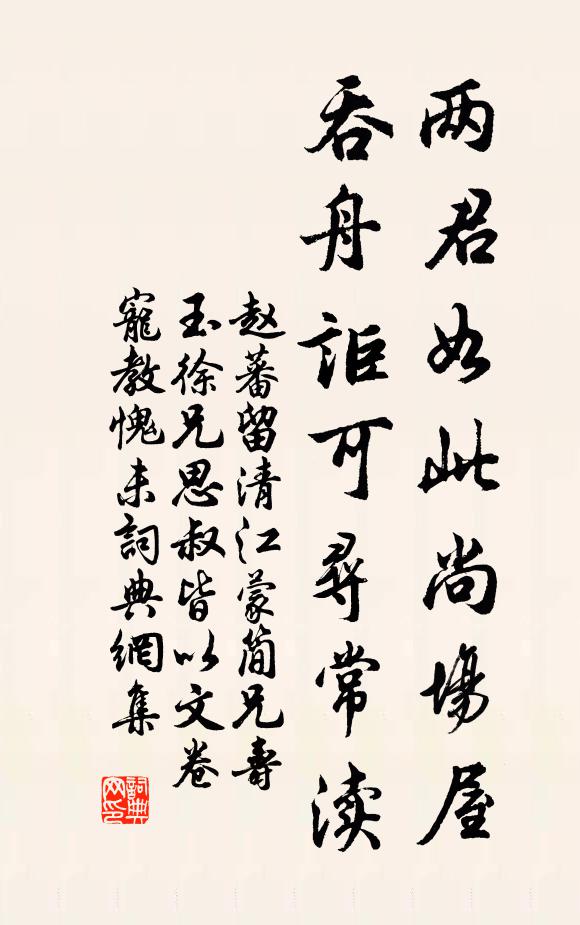 两君如此尚場屋
吞舟詎可尋常渎
赵蕃留清江蒙简兄壽
玉徐兄思叔皆以文卷
寵教愧未詞典網集
詞典网印